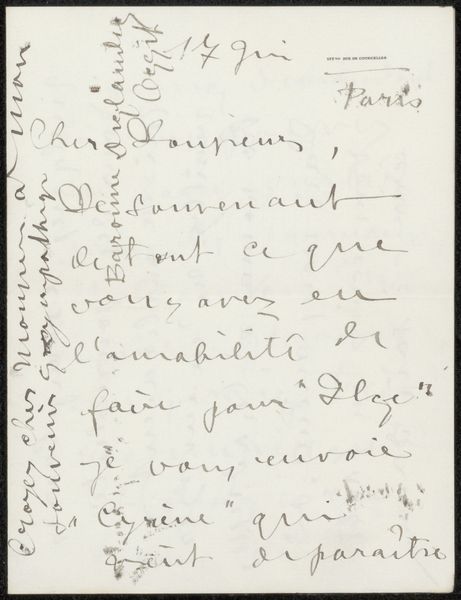 17 Juin
RUE DE COURCELLES
Paris
Cher Monsieur,
Me souvenant
de tout ce que
vous avez eu
l'amabilité de
faire pour "Ilse"
je vous envoie
"Cyrène" qui
vient de paraître
Croyez cher Monsieur à mon
souvenir sympathique
Baronne Deslandes